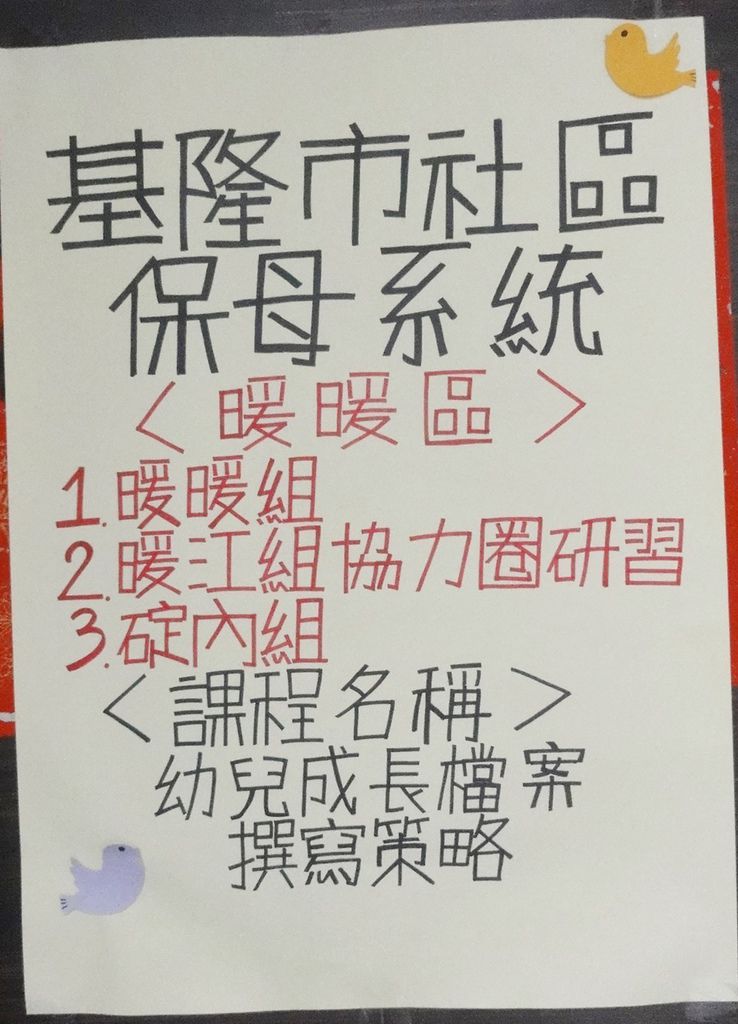 基隆市社區
保母系統
〈暖暖區〉
1.暖暖組
2.暖江組協力圈研習
3.碇內組
〈課程名稱〉
幼兒成長檔案
撰寫策略